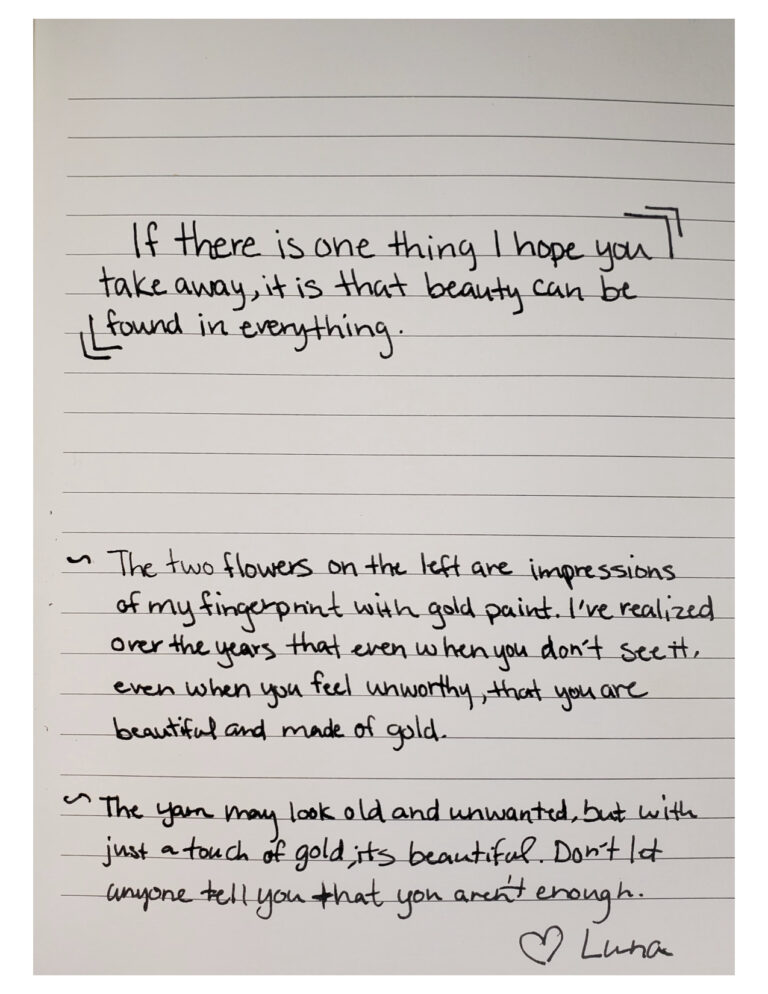 If there is one thing I hope you
take away, it is that beauty can be
found in everything.
~ The two flowers on the left are impressions
of my fingerprint with gold paint. I've realized
over the years that even when you don't see it,
even when you feel unworthy, that you are
beautiful and made of gold.
~ The yarn may look old and unwanted, but with
just a touch of gold, its beautiful. Don't let
anyone tell you that you aren't enough.
♡ Luna